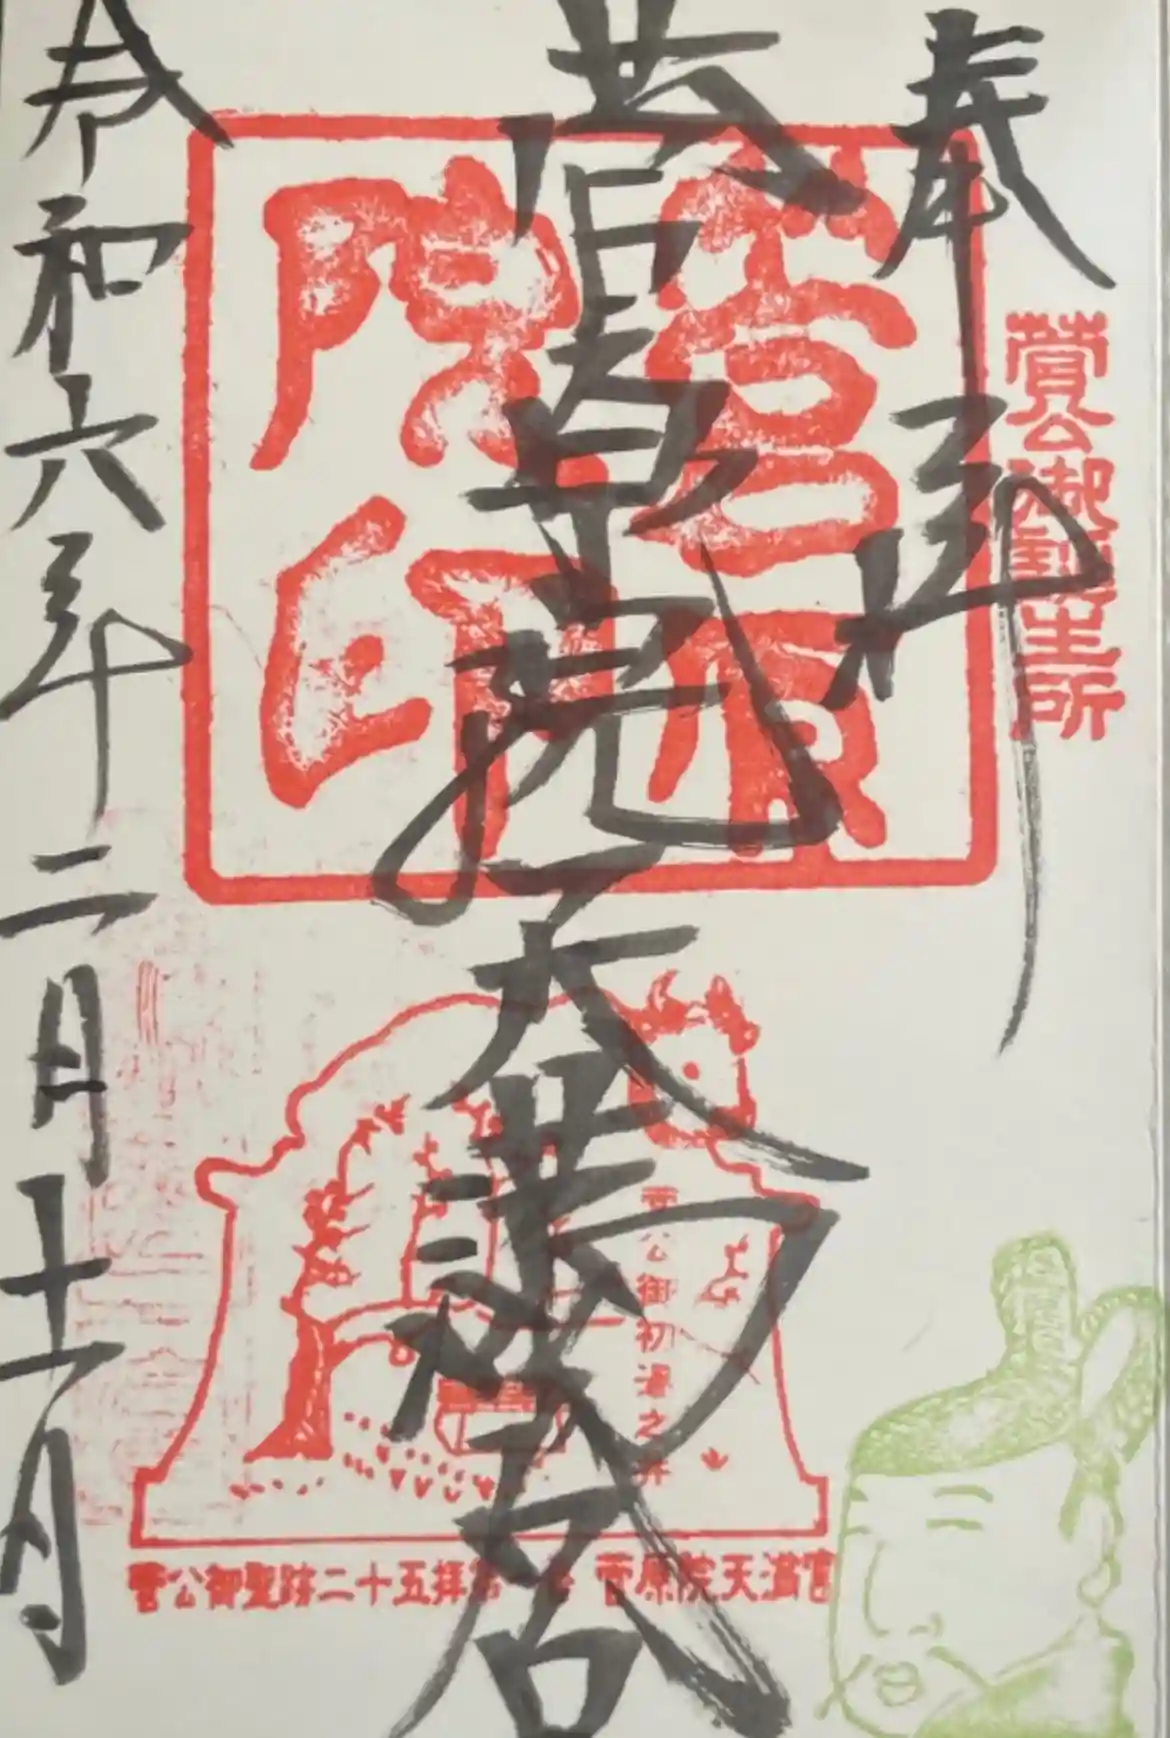 奉拝
菅公御誕生所
菅原院天満宮
菅原院印
菅公御初湯之井
菅公御聖跡二十五拝第 菅原院天満宮
令和六年二月十一日